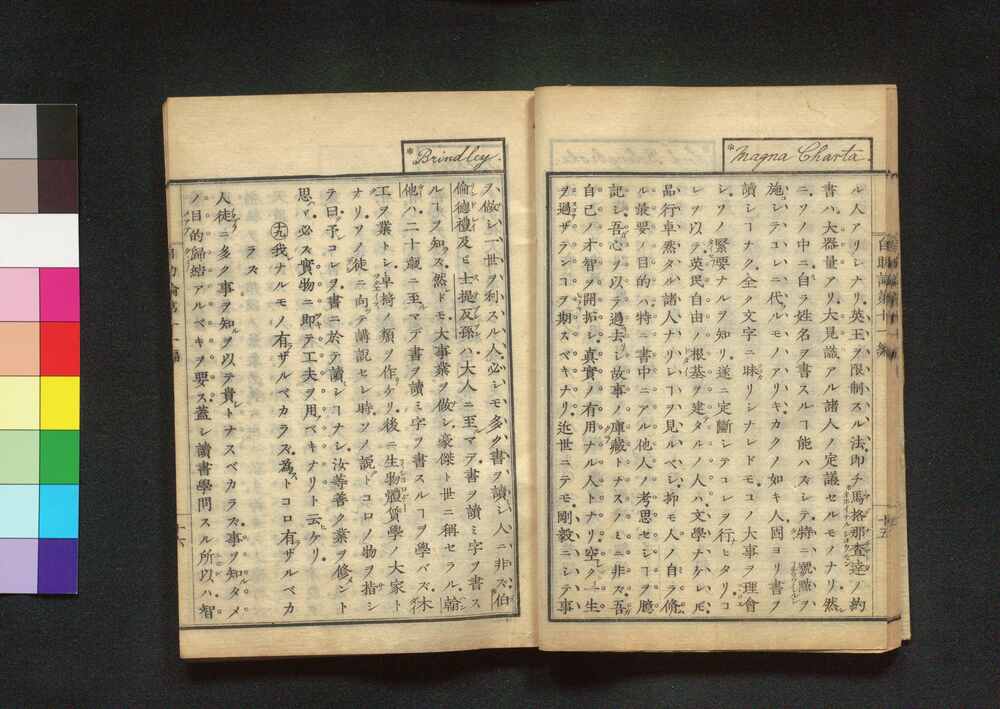 *Magna Charta.
ル人アリシナリ英王ヲ限制スル法即チ馬格那查達ノ約
書ハ大器量アリ大見識アル諸人ノ定議セルモノナリ然
ニソノ中ニ自ラ姓名ヲ書スルヿ能ハズシテ特ニ號驗ヲ
施シテコレニ代ルモノアリキカクノ如キ人因ヨリ書ヲ
讀シヿナク全ク文字ニ昧リシナレドモヨク大事ヲ理會
シソノ緊要ナルヲ知リ遂ニ定斷シテコレヲ行ヒタリコ
レヲ以テ英民自由ノ根基ヲ建タルノ人ハ文學ナケレモ
品行卓然タル諸人ナリシヿヲ見ルベシ抑モ人ノ自ラ脩
ル最要ノ目的ハ特ニ書中ニアル他人ノ考思セシヿヲ臆
記シ吾心ヲ以テ過去シ故事ノ庫藏トナスノミニ非ズ吾
自己ノ才智ヲ開拓シ真實ノ有用ナル人トナリ空ク一生
ヲ過ザランヿヲ期スベキナリ近世ニテモ剛毅ニシテ事
*Brindley.
ヲ做シ一世ヲ利スル人必シモ多ク書ヲ讀シ人ニ非ズ伯
倫德禮及ヒ士提反孫ハ大人ニ至マデ書ヲ讀ミ字ヲ書ス
ルヿヲ知ズ然ドモ大事業ヲ做シ豪傑ト世ニ稱セラル翰
他ハ二十歲ニ至マデ書ヲ讀ミ字ヲ書スルヿヲ學バズ木
工ヲ業トシ卓椅ノ類ヲ作ケリ後ニ生物體質學ノ大家ト
ナリソノ徒ニ向テ講說セシ時ソノ說トコロノ物ヲ指シ
テ曰予コレヲ書ニ於テ讀シヿナシ汝等善ク業ヲ修ント
思ハヾ必ス實物ニ即テ工夫ヲ用ベキナリト云ケリ
十九 我ナルモノ有ザルベカラズ為トコロ有ザルベカ
ラズ
人徒ニ多ク事ヲ知ヲ以テ貴トナスベカラズ事ヲ知タメ
ノ目的歸結アルベキヲ要ス蓋シ讀書學問スル所以ハ智